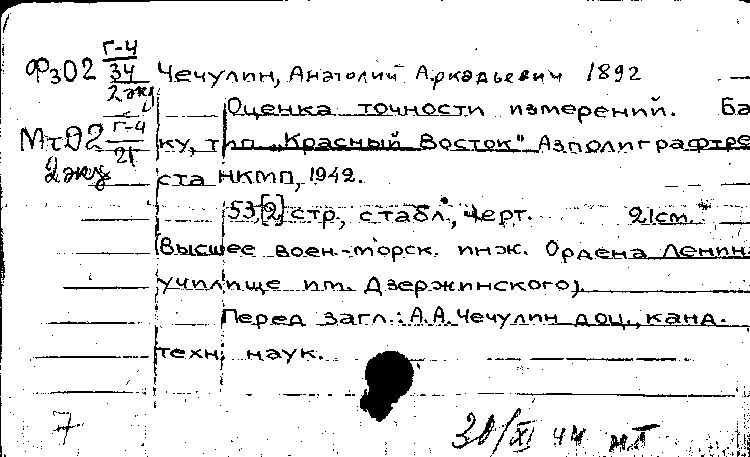 Фз02 Г-4/34 2 экз Чечулин, Анатолий Аркадьевич 1892
Оценка точности измерений. Ба
Мт02 Г-4/21 2 экз ку, тип. „Красный Восток" Азполиграфтре
ста НКМП, 1942.
53[2] стр., с табл., черт. 21см.
Высшее воен.-морск. инж. Ордена Ленин
училище им. Дзержинского).
Перед загл.: А.А. Чечулин доц., канд.
техн. наук.
7
30/XI 44 нт